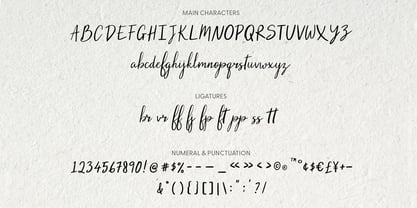 MAIN CHARACTERS
ABCDEFGHIJKLMNOPQRSTUVWXYZ
abcdefghijklmnopqrstuvwxyz
LIGATURES
br vr ff fj fp ft pp ss tt
NUMERAL & PUNCTUATION
1234567890!@#$%---_«»<>©®™°¢$€£¥+-
'&"(){}[]|\:";'?/